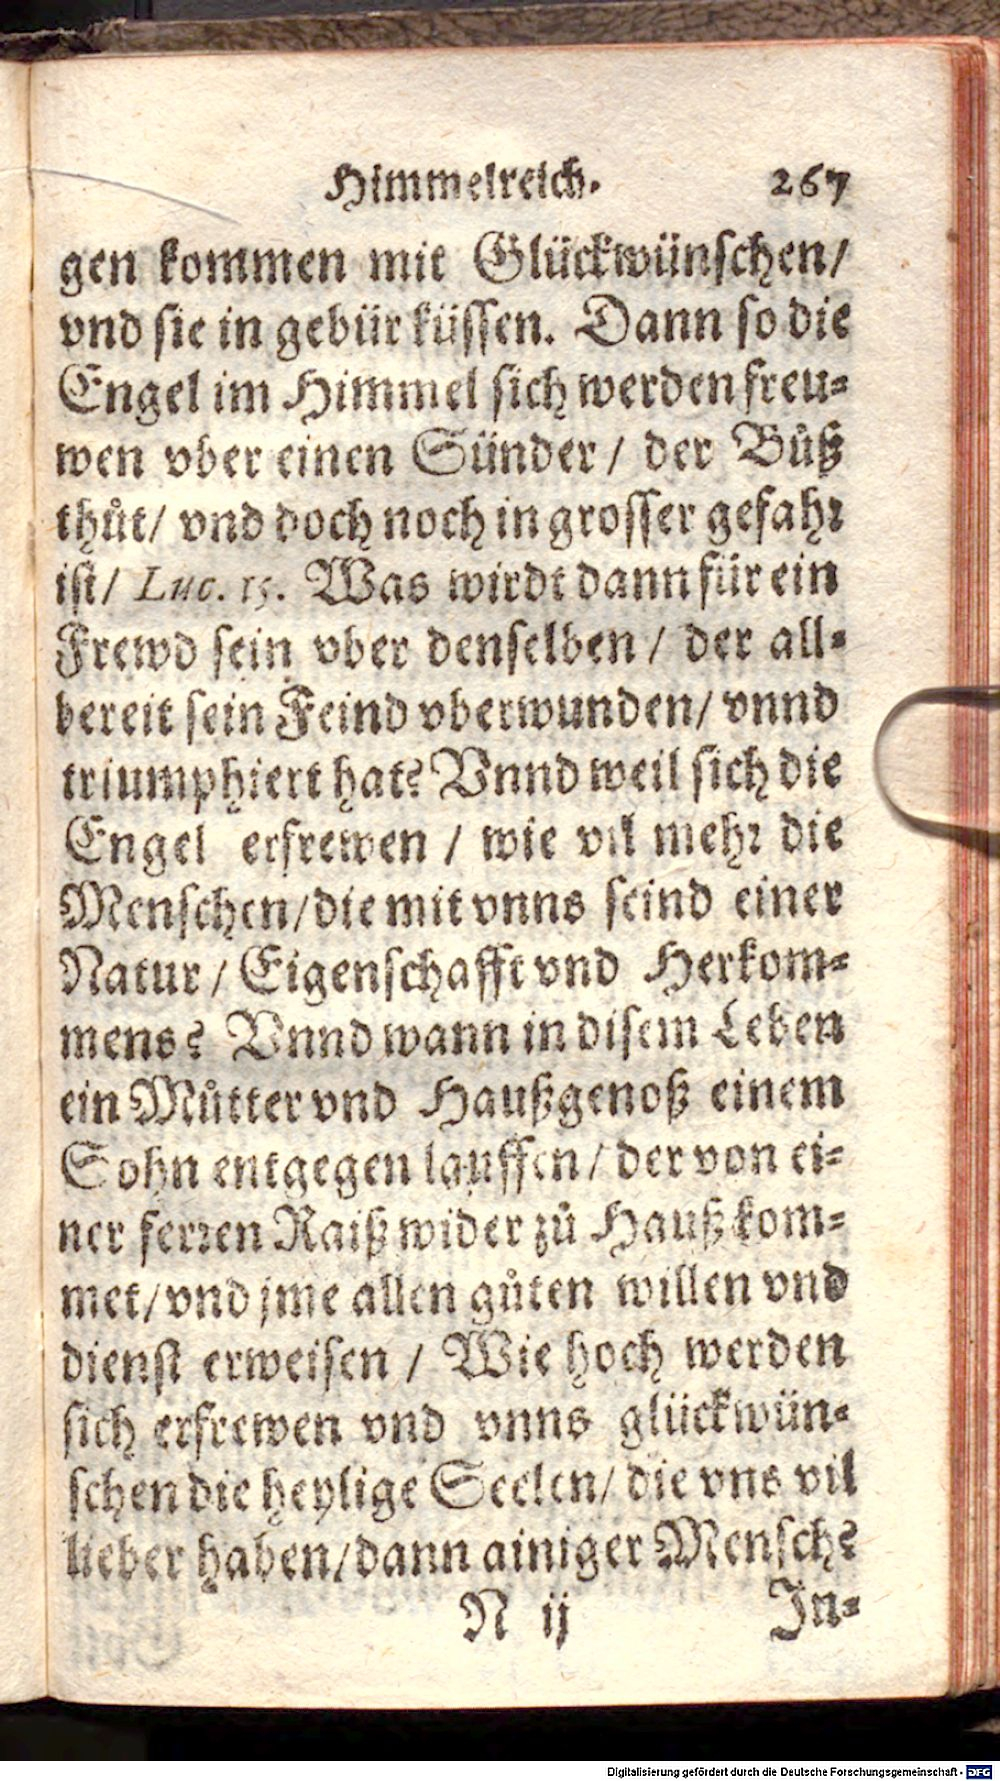 Himmelreich. 267
gen kommen mit Glückwünschen/
vnd sie in gebür küssen. Dann so die
Engel im Himmel sich werden freu-
wen vber einen Sünder / der Bůß
thůt/ vnd doch noch in grosser gefahr
ist/ Luc. 15. Was wirdt dann für ein
Frewd sein vber denselben / der all-
bereit sein Feind vberwunden/ vnnd
triumphiert hat? Vnnd weil sich die
Engel erfrewen / wie vil mehr die
Menschen/die mit vnns seind einer
Natur / Eigenschafft vnd Herkom-
mens? Vnnd wann in disem Leben
ein Můtter vnd Haußgenoß einem
Sohn entgegen lauffen/ der von ei-
ner ferren Raiß wider zů Hauß kom-
met/ vnd jme allen gůten willen vnd
dienst erweisen / Wie hoch werden
sich erfrewen vnd vnns glückwün-
schen die heylige Seelen/ die vns vil
lieber haben/dann ainiger Mensch?
N ij In-
Digitalisierung gefördert durch die Deutsche Forschungsgemeinschaft - DFG